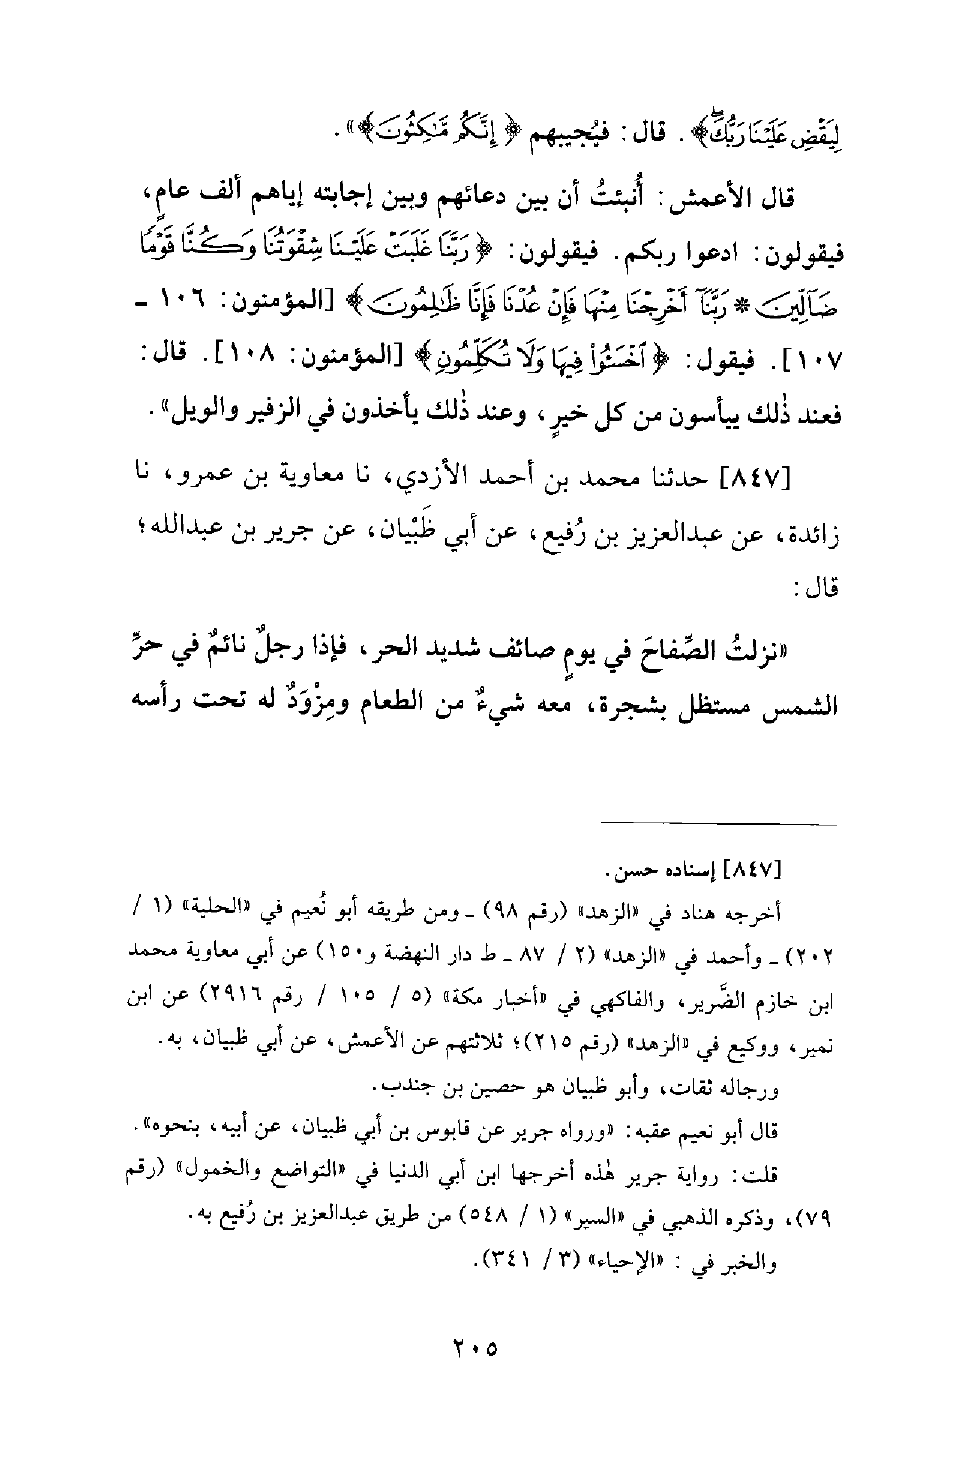 لِيَقْضِ عَلَيْنَا رَبُّكَ﴾. قال: فيُجيبهم ﴿إِنَّكُم مَّاكِثُونَ﴾».
قال الأعمش: أُنبئتُ أن بين دعائهم وبين إجابته إياهم ألف عامٍ،
فيقولون: ادعوا ربكم. فيقولون: ﴿رَبَّنَا غَلَبَتْ عَلَيْنَا شِقْوَتُنَا وَكُنَّا قَوْمًا
ضَآلِّينَ * رَبَّنَآ أَخْرِجْنَا مِنْهَا فَإِنْ عُدْنَا فَإِنَّا ظَالِمُونَ﴾ [المؤمنون: ١٠٦ ـ
١٠٧]. فيقول: ﴿ٱخْسَـُٔوا۟ فِيهَا وَلَا تُكَلِّمُونِ﴾ [المؤمنون: ١٠٨]. قال:
فعند ذٰلك ييأسون من كل خيرٍ، وعند ذٰلك يأخذون في الزفير والويل».
[٨٤٧] حدثنا محمد بن أحمد الأزدي، نا معاوية بن عمرو، نا
زائدة، عن عبدالعزيز بن رُفيع، عن أبي ظَبْيان، عن جرير بن عبدالله؛
قال:
«نزلتُ الصِّفاحَ في يومٍ صائف شديد الحر، فإذا رجلٌ نائمٌ في حرِّ
الشمس مستظل بشجرة، معه شيءٌ من الطعام ومِزْوَدٌ له تحت رأسه
[٨٤٧] إسناده حسن.
أخرجه هناد في «الزهد» (رقم ٩٨) ـ ومن طريقه أبو نُعيم في «الحلية» (١ /
٢٠٢) ـ وأحمد في «الزهد» (٢ / ٨٧ ـ ط دار النهضة و١٥٠) عن أبي معاوية محمد
ابن خازم الضَّرير، والفاكهي في «أخبار مكة» (٥ / ١٠٥ / رقم ٢٩١٦) عن ابن
نمير، ووكيع في «الزهد» (رقم ٢١٥)؛ ثلاثتهم عن الأعمش، عن أبي ظبيان، به.
ورجاله ثقات، وأبو ظبيان هو حصين بن جندب.
قال أبو نعيم عقبه: «ورواه جرير عن قابوس بن أبي ظبيان، عن أبيه، بنحوه».
قلت: رواية جرير هٰذه أخرجها ابن أبي الدنيا في «التواضع والخمول» (رقم
٧٩)، وذكره الذهبي في «السير» (١ / ٥٤٨) من طريق عبدالعزيز بن رُفيع به.
والخبر في: «الإحياء» (٣ / ٣٤١).
٢٠٥